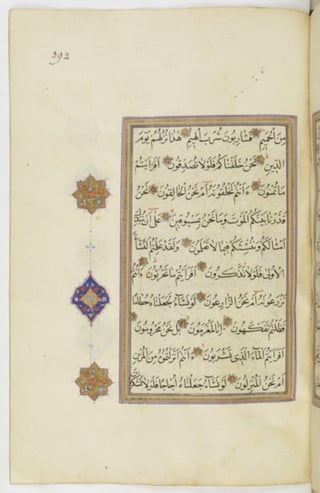 392
مِنَ الْحَمِيمِ فَشَارِبُونَ شُرْبَ الْهِيمِ هٰذَا نُزُلُهُمْ يَوْمَ
الدِّينِ نَحْنُ خَلَقْنَاكُمْ فَلَوْلَا تُصَدِّقُونَ اَفَرَاَيْتُمْ
مَا تُمْنُونَ ءَاَنْتُمْ تَخْلُقُونَهُ اَمْ نَحْنُ الْخَالِقُونَ نَحْنُ
قَدَّرْنَا بَيْنَكُمُ الْمَوْتَ وَمَا نَحْنُ بِمَسْبُوقِينَ عَلٰى اَنْ نُبَدِّلَ
اَمْثَالَكُمْ وَنُنْشِئَكُمْ فِيمَا لَا تَعْلَمُونَ وَلَقَدْ عَلِمْتُمُ النَّشْاَةَ
الْاُولٰى فَلَوْلَا تَذَكَّرُونَ اَفَرَاَيْتُمْ مَا تَحْرُثُونَ ءَاَنْتُمْ
تَزْرَعُونَهُ اَمْ نَحْنُ الزَّارِعُونَ لَوْ نَشَاءُ لَجَعَلْنَاهُ حُطَامًا
فَظَلْتُمْ تَفَكَّهُونَ اِنَّا لَمُغْرَمُونَ بَلْ نَحْنُ مَحْرُومُونَ
اَفَرَاَيْتُمُ الْمَاءَ الَّذِي تَشْرَبُونَ ءَاَنْتُمْ اَنْزَلْتُمُوهُ مِنَ الْمُزْنِ
اَمْ نَحْنُ الْمُنْزِلُونَ لَوْ نَشَاءُ جَعَلْنَاهُ اُجَاجًا فَلَوْلَا تَشْكُرُونَ